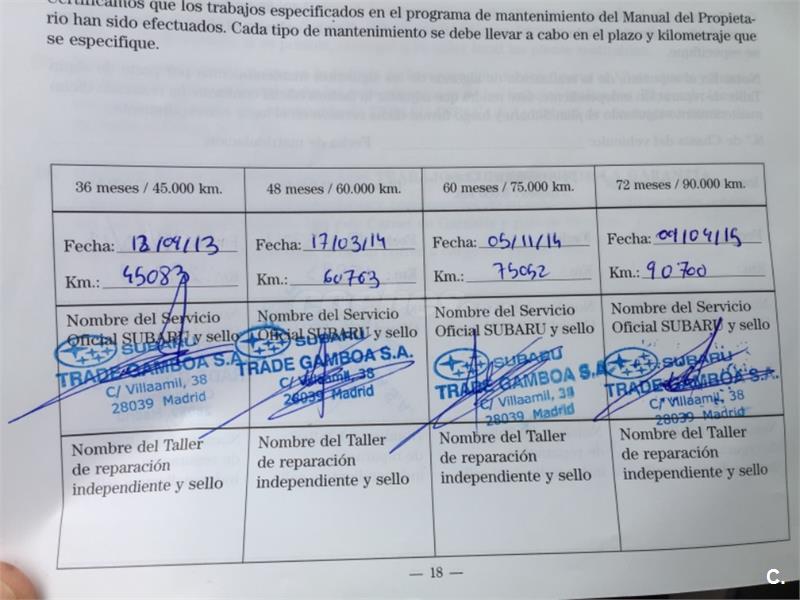 Certificamos que los trabajos especificados en el programa de mantenimiento del Manual del Propieta-
rio han sido efectuados. Cada tipo de mantenimiento se debe llevar a cabo en el plazo y kilometraje que
se especifique.
36 meses / 45.000 km.
48 meses / 60.000 km.
60 meses / 75.000 km.
72 meses / 90.000 km.
Fecha: /04/13
Km.: 45083
Fecha: 17/03/14
Km.: 60763
Fecha: 05/11/14
Km.: 75052
Fecha: 09/04/15
Km.: 90700
Nombre del Servicio
Oficial SUBARU y sello
SUBARU
TRADE GAMBOA S.A.
C/ Villaamil, 38
28039 Madrid
Nombre del Servicio
Oficial SUBARU y sello
SUBARU
TRADE GAMBOA S.A.
C/ Villaamil, 38
28039 Madrid
Nombre del Servicio
Oficial SUBARU y sello
SUBARU
TRADE GAMBOA S.A.
C/ Villaamil, 38
28039 Madrid
Nombre del Servicio
Oficial SUBARU y sello
SUBARU
TRADE GAMBOA S.A.
C/ Villaamil, 38
28039 Madrid
Nombre del Taller
de reparación
independiente y sello
Nombre del Taller
de reparación
independiente y sello
Nombre del Taller
de reparación
independiente y sello
Nombre del Taller
de reparación
independiente y sello
— 18 —
C.